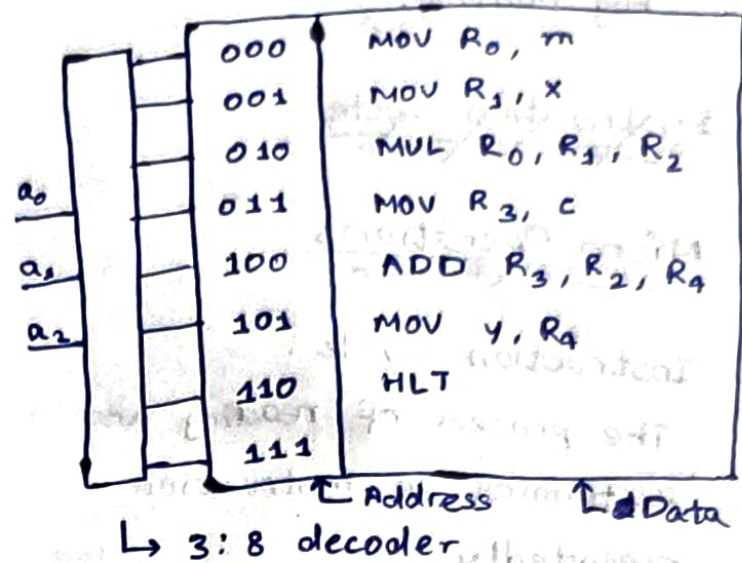 000 MOV R₀, m
001 MOV R₁, x
010 MUL R₀, R₁, R₂
a₀
011 MOV R₃, c
a₁
100 ADD R₃, R₂, R₄
a₂
101 MOV y, R₄
110 HLT
111
Address
Data
↳ 3:8 decoder